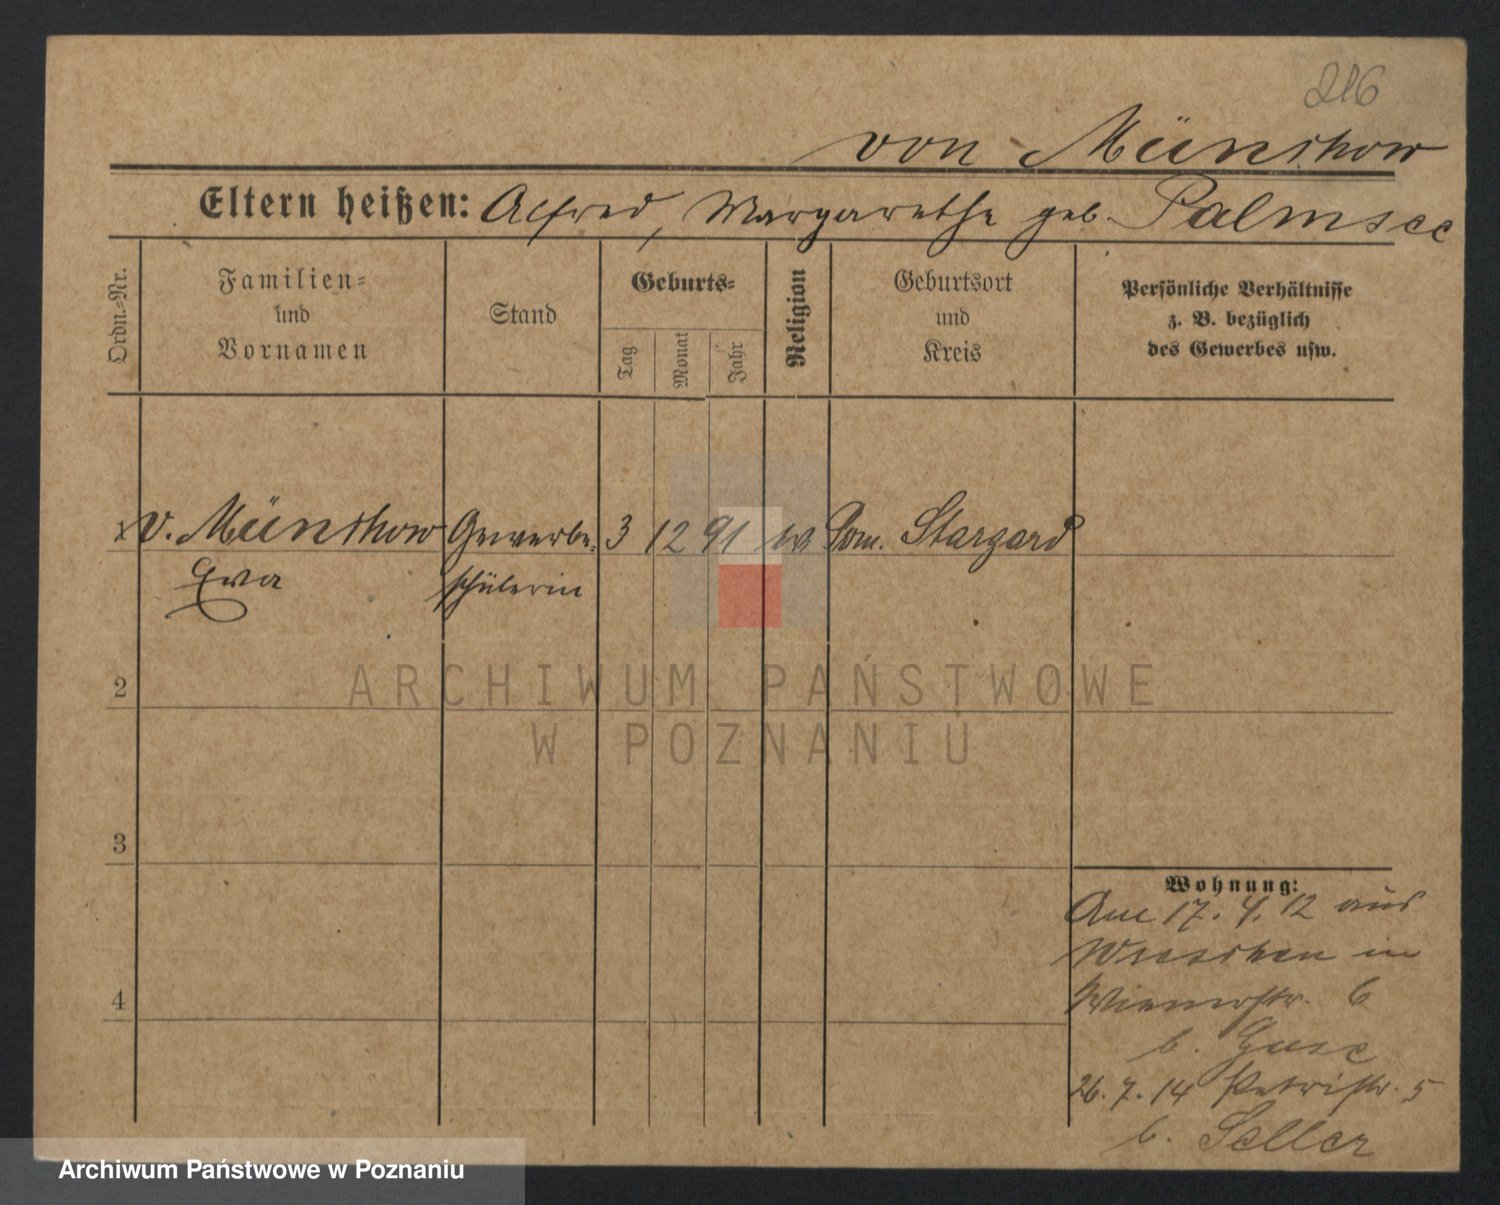 216
von Münchow
Eltern heißen: Alfred, Margarethe geb. Palmscc
Ordn.-Nr.
Familien-
und
Vornamen
Stand
Geburts-
Tag
Monat
Jahr
Religion
Geburtsort
und
Kreis
Persönliche Verhältnisse
z. B. bezüglich
des Gewerbes usw.
1 v. Münchow Gewerbe- 3 12 91 ev Pom. Stargard
Eva schülerin
2
3
4
Wohnung:
Am 17. 4. 12 aus
Wreschen in
Wienerstr. 6
b.
26. 7. 14 Petristr. 5
b. Seller
ARCHIWUM PAŃSTWOWE
W POZNANIU
Archiwum Państwowe w Poznaniu